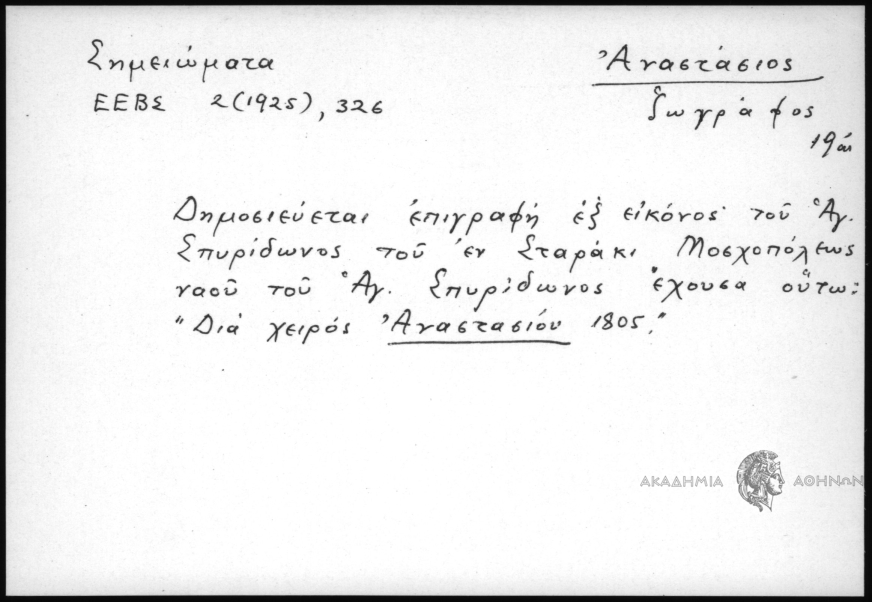 Σημειώματα
ΕΕΒΣ 2(1925), 326
Ἀναστάσιος
ζωγράφος
19 αι
Δημοσιεύεται ἐπιγραφή ἐξ εἰκόνος τοῦ Ἁγ.
Σπυρίδωνος τοῦ ἐν Σταράκι Μοσχοπόλεως
ναοῦ τοῦ Ἁγ. Σπυρίδωνος ἔχουσα οὕτω:
"Διά χειρός Ἀναστασίου 1805."
ΑΚΑΔΗΜΙΑ ΑΘΗΝΩΝ